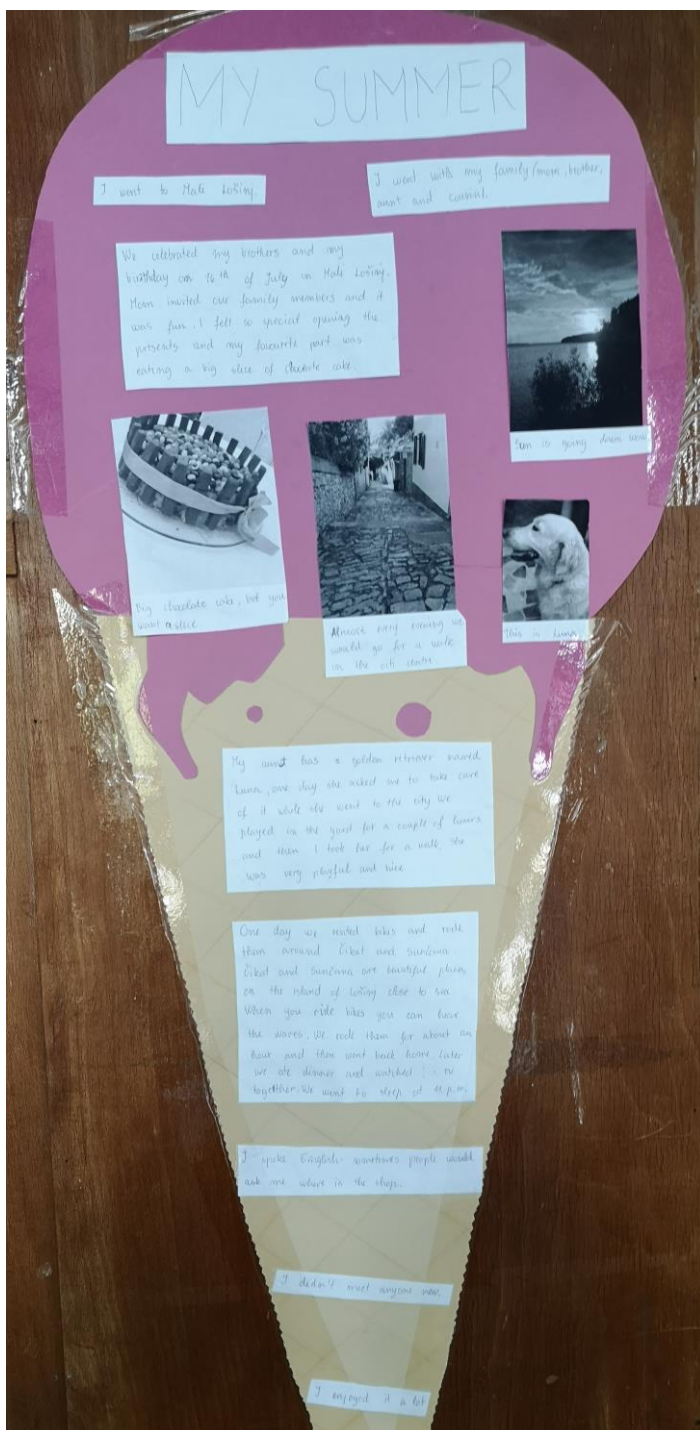 MY SUMMER
I went to Mali Lošinj.
I went with my family (mom, brother,
aunt and cousin).
We celebrated my brothers and my
birthday on 16th of July in Mali Lošinj.
Mom invited our family members and it
was fun. I felt so special opening the
presents and my favourite part was
eating a big slice of chocolate cake.
Sun is going down wow.
Big chocolate cake, but you
want a slice
Almost every evening we
would go for a walk
in the citi centre.
This is Luna
My aunt has a golden retriever named
Luna, one day she asked me to take care
of it while she went to the city We
played in the yard for a couple of hours
and then I took her for a walk. She
was very playful and nice
One day we rented bikes and rode
them around Čikat and Sunčana.
Čikat and Sunčana are beautiful places
on the island of Lošinj close to sea.
When you ride bikes you can hear
the waves. We rode them for about an
hour and then went back home. Later
we ate dinner and watched TV
together. We went to sleep at p.m.
I spoke English sometimes people would
ask me where is the shop.
I dedn't meet anyone new.
I enjoyed it a lot